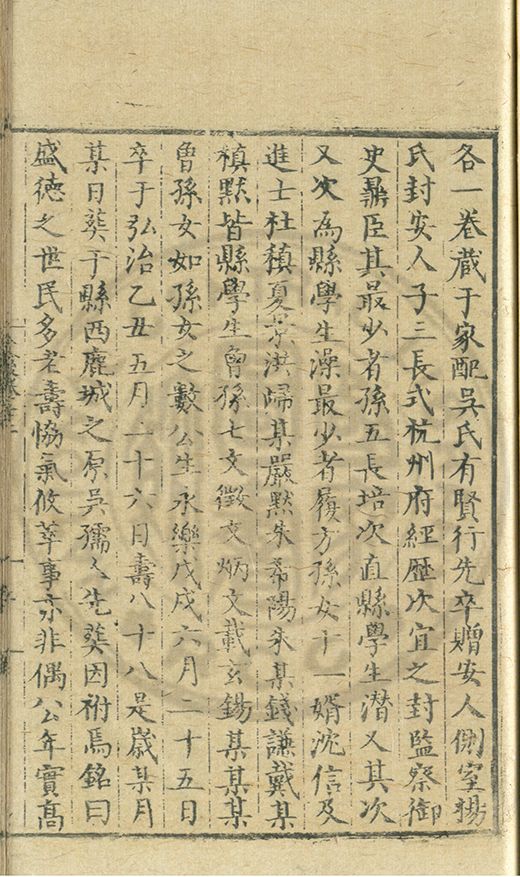 各一卷蔵于家配吳氏有賢行先卒贈安人側室楊
氏封安人子三長式杭州府經歷次宜之封監察御
史鼒臣其最少者孫五長培次直縣學生潜又其次
又次為縣學生澡最少者履方孫女十一婿沈信及
進士杜稹夏京洪歸某嚴黙朱希陽朱某錢謙戴某
稹黙皆縣學生曾孫七文徵文炳文載玄錫某某某
曾孫女如孫女之數公生永樂戊戌六月二十五日
卒于弘治乙丑五月二十六日壽八十八是歲某月
某日葬于縣西鹿城之原吳孺人先葬因祔焉銘曰
盛德之世民多老壽恊氣攸萃事亦非偶公年實高